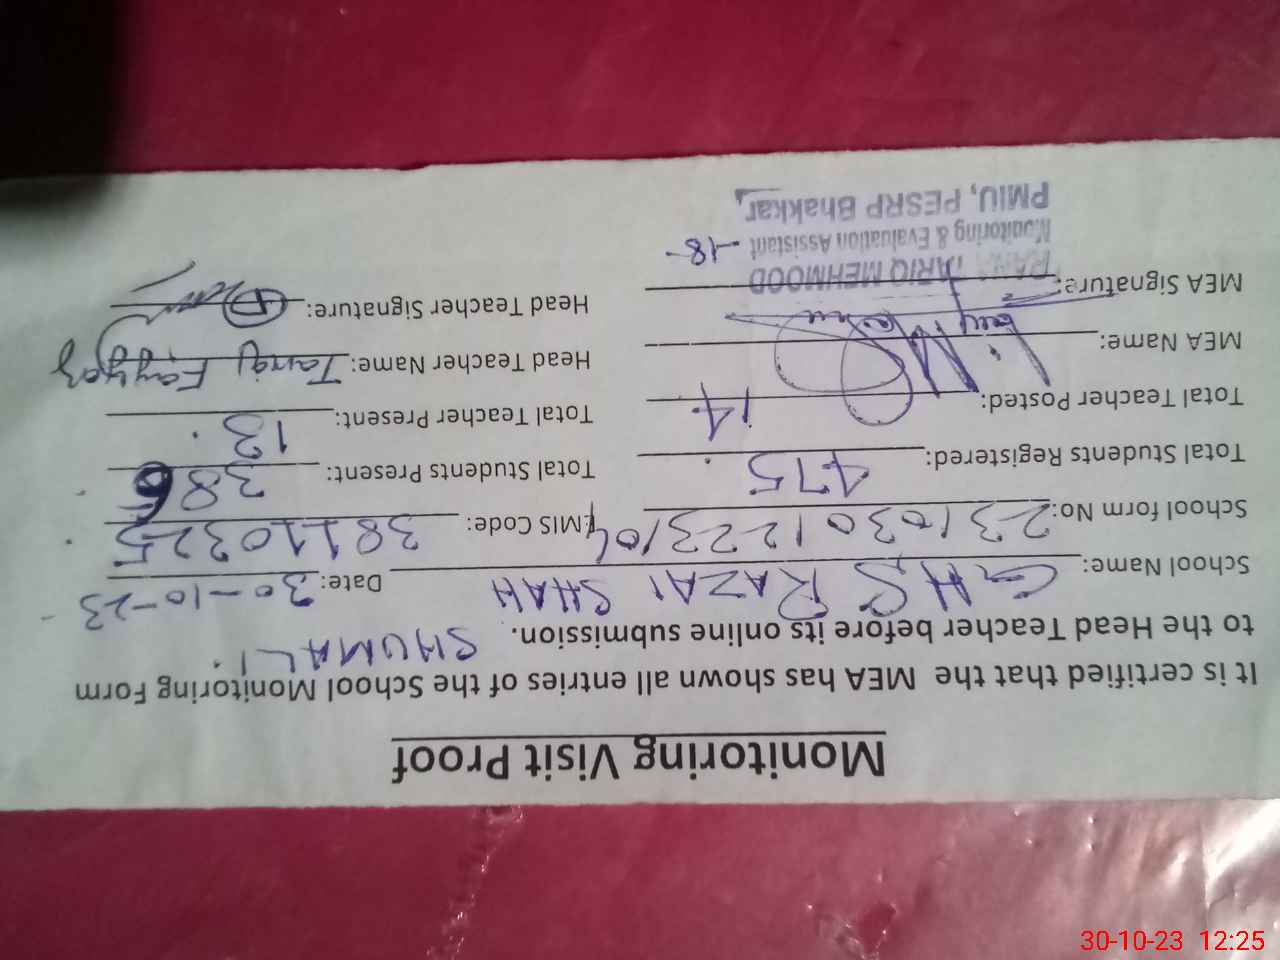 Monitoring Visit Proof
It is certified that the MEA has shown all entries of the School Monitoring Form
to the Head Teacher before its online submission. SHUMALI.
School Name: GHS RAZAI SHAH Date: 30-10-23
School form No: 2310301223104 EMIS Code: 38110325
Total Students Registered: 475 Total Students Present: 386
Total Teacher Posted: 14 Total Teacher Present: 13
MEA Name: Head Teacher Name: Tariq Fayyaz
MEA Signature: Head Teacher Signature:
TARIQ MEHMOOD
Monitoring & Evaluation Assistant -18-
PMIU, PESRP Bhakkar
30-10-23 12:25